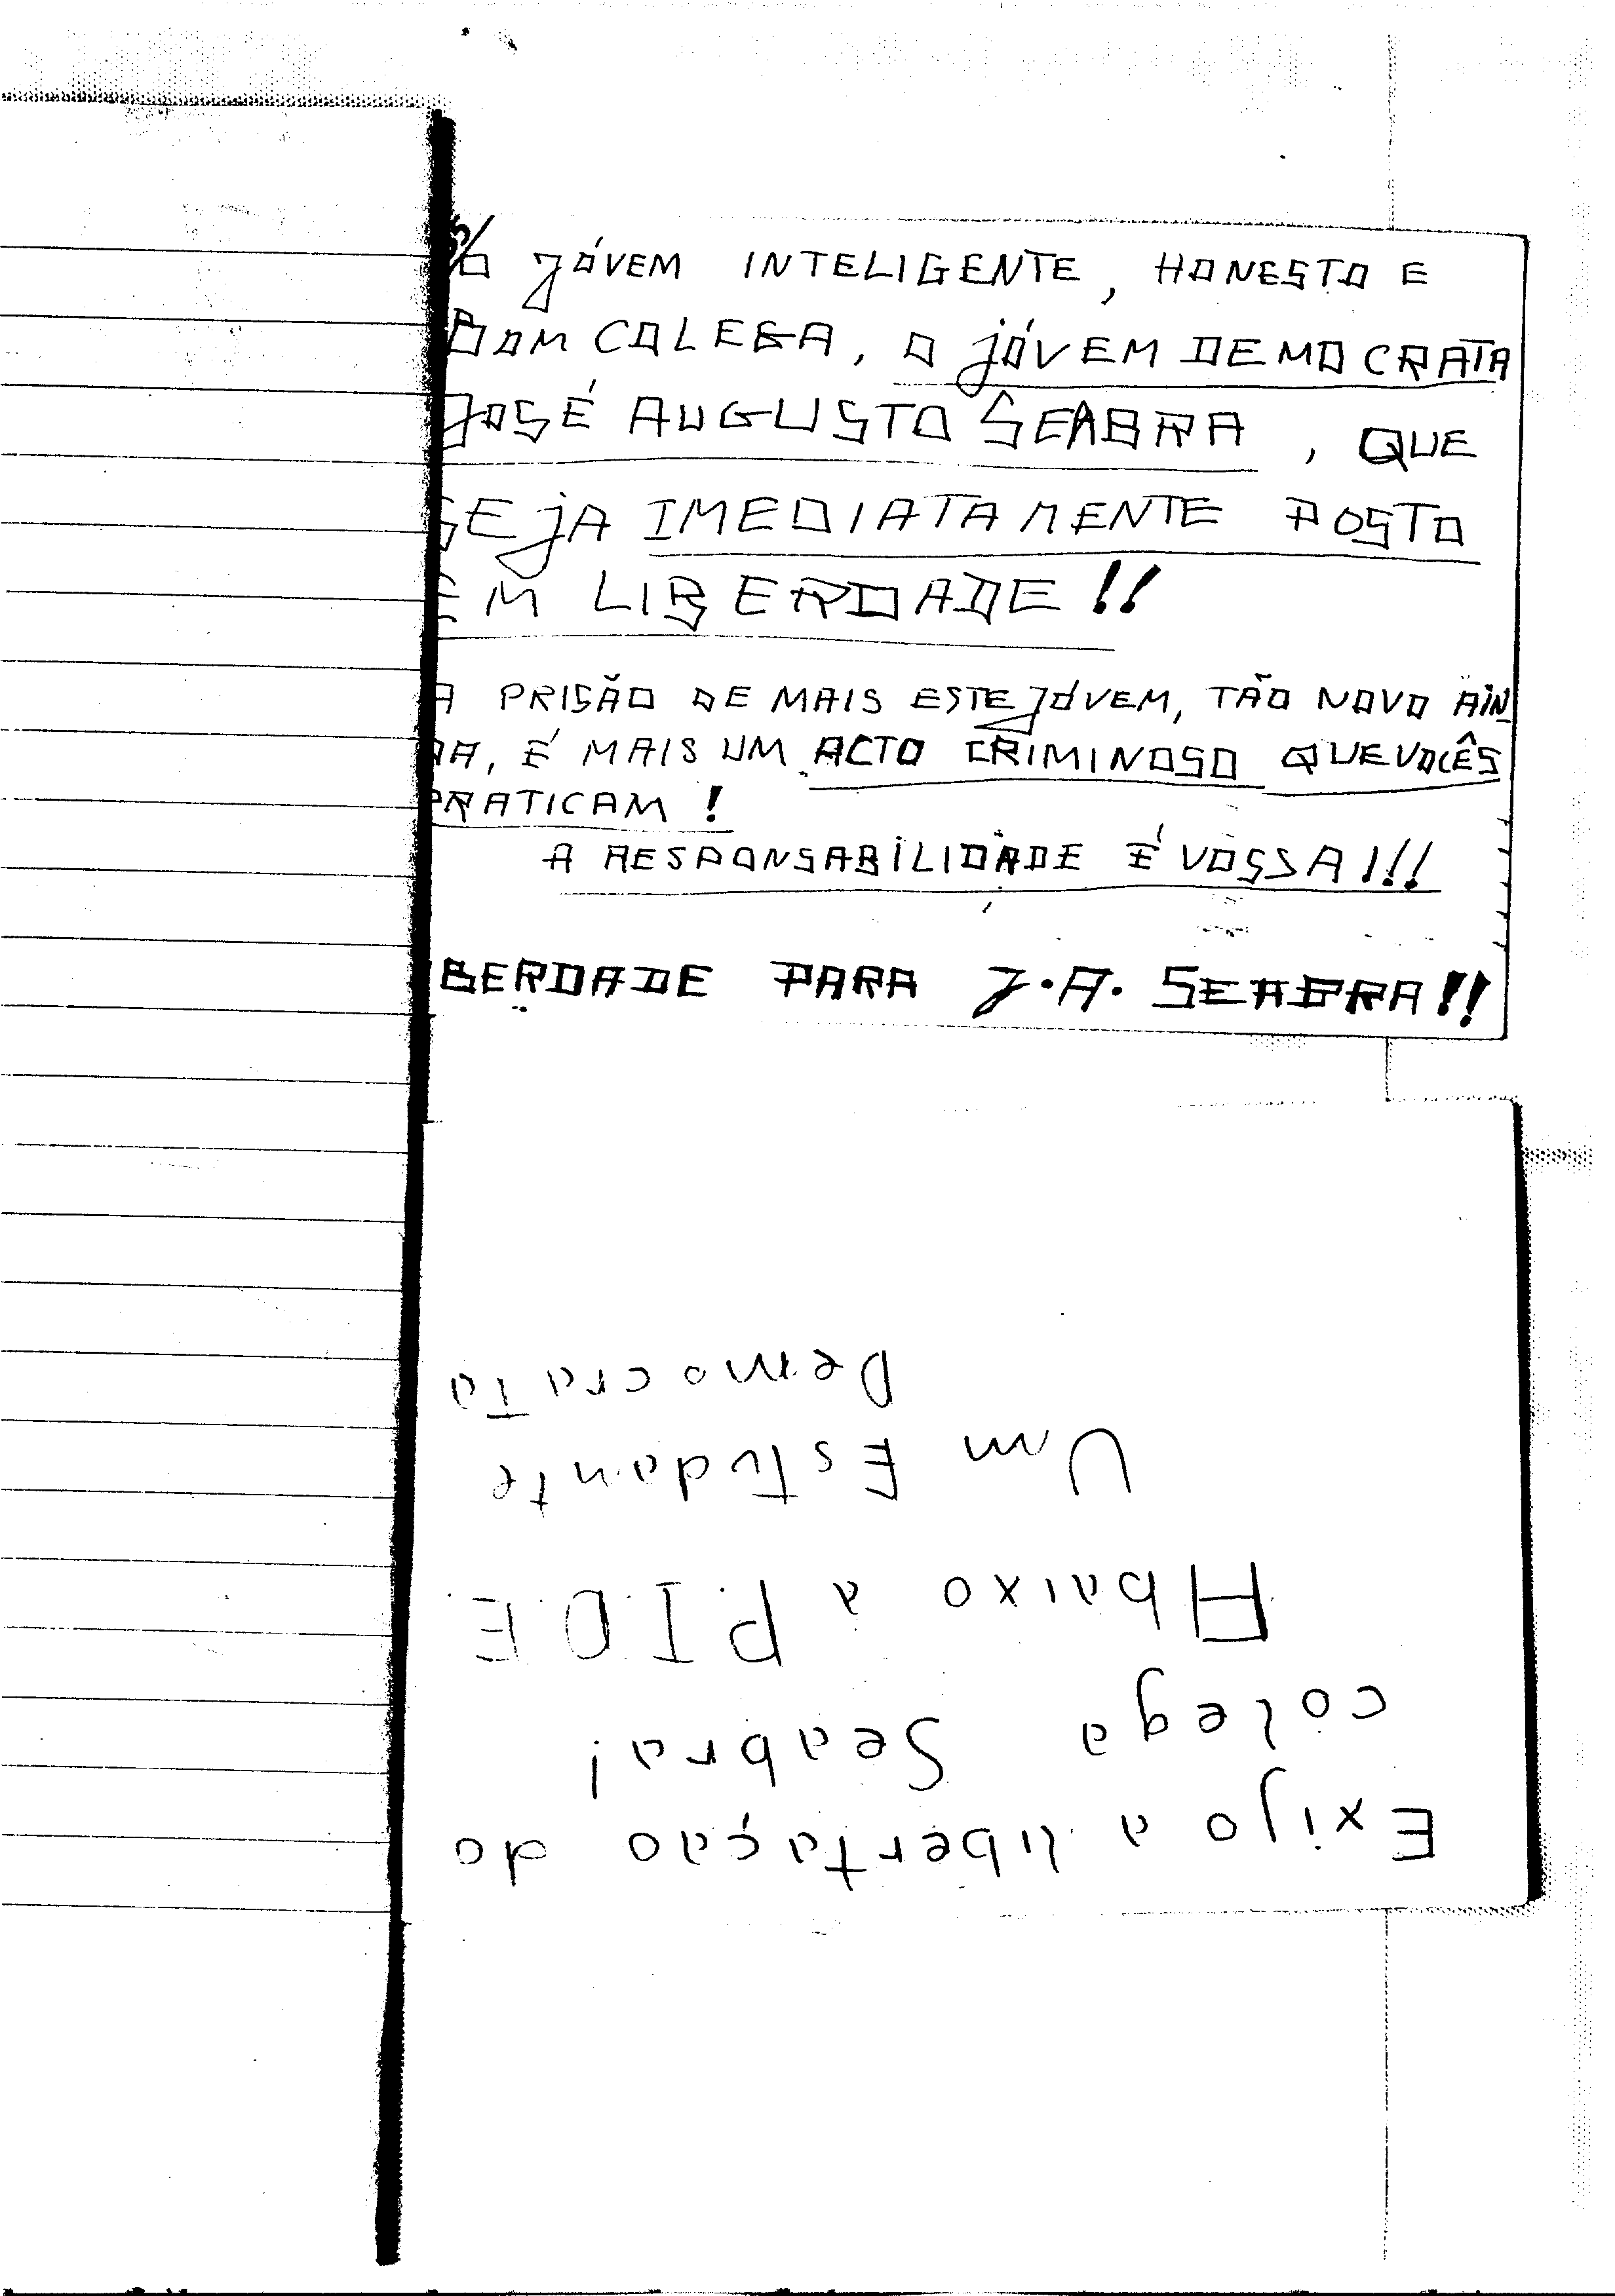 O JÓVEM INTELIGENTE, HONESTO E
BOM COLEGA, O JÓVEM DEMOCRATA
JOSÉ AUGUSTO SEABRA, QUE
SEJA IMEDIATAMENTE POSTO
EM LIBERDADE!!
A PRISÃO DE MAIS ESTE JÓVEM, TÃO NOVO AIN
DA, É MAIS UM ACTO CRIMINOSO QUE VOCÊS
PRATICAM!
A RESPONSABILIDADE É VOSSA!!!
BERDADE PARA J.A. SEABRA!!
Exijo a libertação do
colega Seabra!
Abaixo a P.I.D.E.
Um Estudante
Democrata